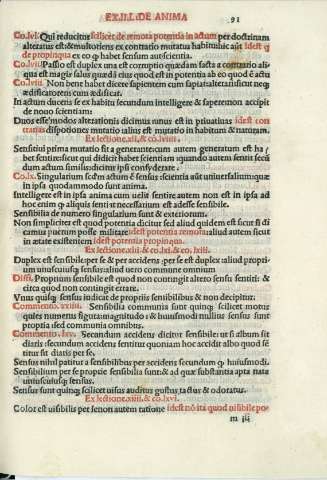 EX.II.DE ANIMA 91
Co.lvi. Qui reducitur scilicet de remota potentia in actum per doctrinam
alteratus est: & multotiens ex contratio mutatus habitu hic ait idest q̃
de propinqua ex eo q habet sensum aut scientia.
Co.lvii. Passio est duplex una est corruptio quædam facta e contratio ali-
qua est magis salus quædã eius quod est in potentia ab eo quod é actu
Co.lviii Non bene habet dicere sapientem cum sapiat alterari sicut neq;
ædificatorem cum ædificat.
In actum ducens se ex habitu secundum intelligere & saperem non accipit
de nouo scientiam
Duos esse modos alterationis dicimus unus est in priuatiuas idest con
trarias dispositiones mutatio alius est mutatio in habitum & naturam.
Ex lectione.xii. & co.lviiii.
Sensitiui prima mutatio fit a generante: cum autem generatum est ha
bet sentire sicut qui didicit habet scientiam: quando autem sentit secũ
dum actum simili dicimus ipsi considerate.
Co.lx. Singularium secũm actum é sensus scientia aũt uniuersalium quæ
in ipsa quodammodo sunt anima.
Intelligere est in ipsa anima cum uelit sentire autem non est in ipsa ad
hoc enim q aliquis sentit necessarium est adesse sensibile.
Sensibilia de numero singularium sunt & exteriorum.
Non simpliciter est quod potentia dicitur sed aliud quidem est sicut si di
camus puerum posse militare idest potentia remota aliud autem sicut
in ætate existentem idest potentia propinqua.
Ex lectione.xiii & co.lxi. & co.lxiii.
Duplex est sensibile: per se & per accidens: per se est duplex aliud propri-
um uniuscuiusq; sensus: aliud uero commune omnium
Diffi. Proprium sensibile est quod non contingit altero sensu sentiri: &
circa quod non contingit errare.
Vnus quisq; sensus iudicat de propriis sensibilibus & non decipitur.
Commento.xxiiii. Sensibilia communia sunt quinq; scilicet motus
quies numerus figura magnitudo: & huiusmodi nullius sensus sunt
propria: sed communia omnibus.
Commento.lxv. Secundum accidens dicitur sensibile: ut si album sit
diarii: secundum accidens sentitur quoniam hoc accidit albo quod sé
titur sit diarii per se.
Sensus nihil patitur a sensibilibus per accidens secundum q huiusmodi.
Sensibilium per se proprie sensibilia sunt: & ad quæ substantia apta nata
uniuscuiusq; sensus.
Sensus sunt quinq; scilicet uisus auditus gustus tactus & odoratus.
Ex lectione.xiiii. & co.lxvi.
Color est uisibilis per se non autem ratione idest nõ ita quod uisibile po-
m iii